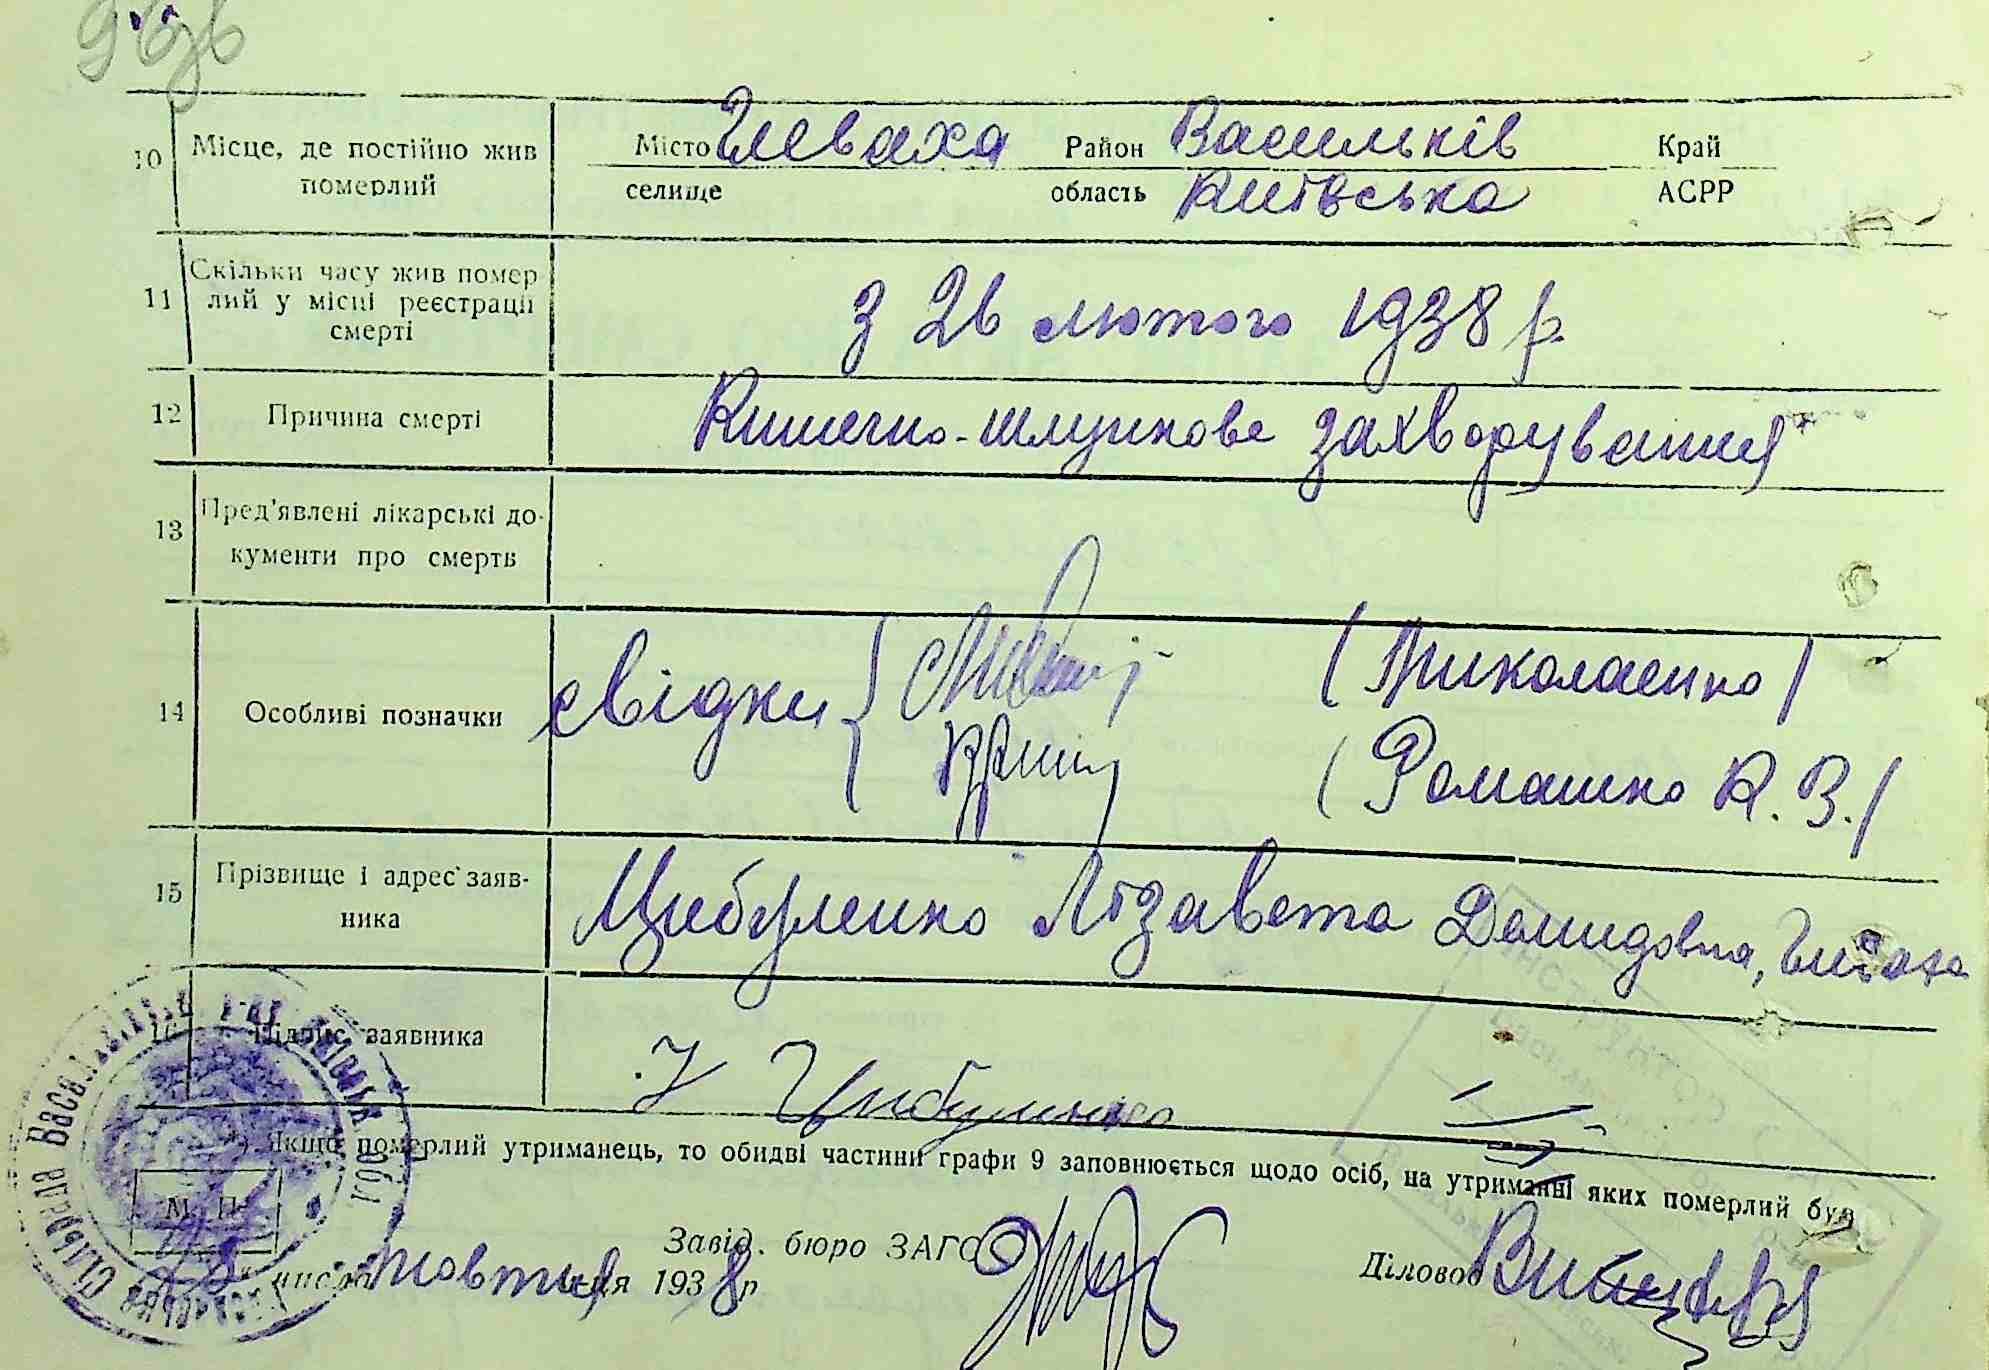 10 Місце, де постійно жив померлий
Місто Глеваха Район Васильків Край
селище область Київська АСРР
11 Скільки часу жив помер
лий у місці реєстрації
смерті
З 26 лютого 1938 р.
12 Причина смерті
Кишечно-шлункове захворування
13 Пред'явлені лікарські до-
кументи про смерть
14 Особливі позначки
свідки
(Миколаенко)
(Ромашко К. В.)
15 Прізвище і адрес заяв-
ника
Цибуленко Лізавета Демидовна, Глеваха
16 Підпис заявника
Цибуленко
*) Якщо померлий утриманець, то обидві частини графи 9 заповнюється щодо осіб, на утриманні яких померлий був
М. П.
Завід. бюро ЗАГС
Діловод
числа жовтня ця 1938 р